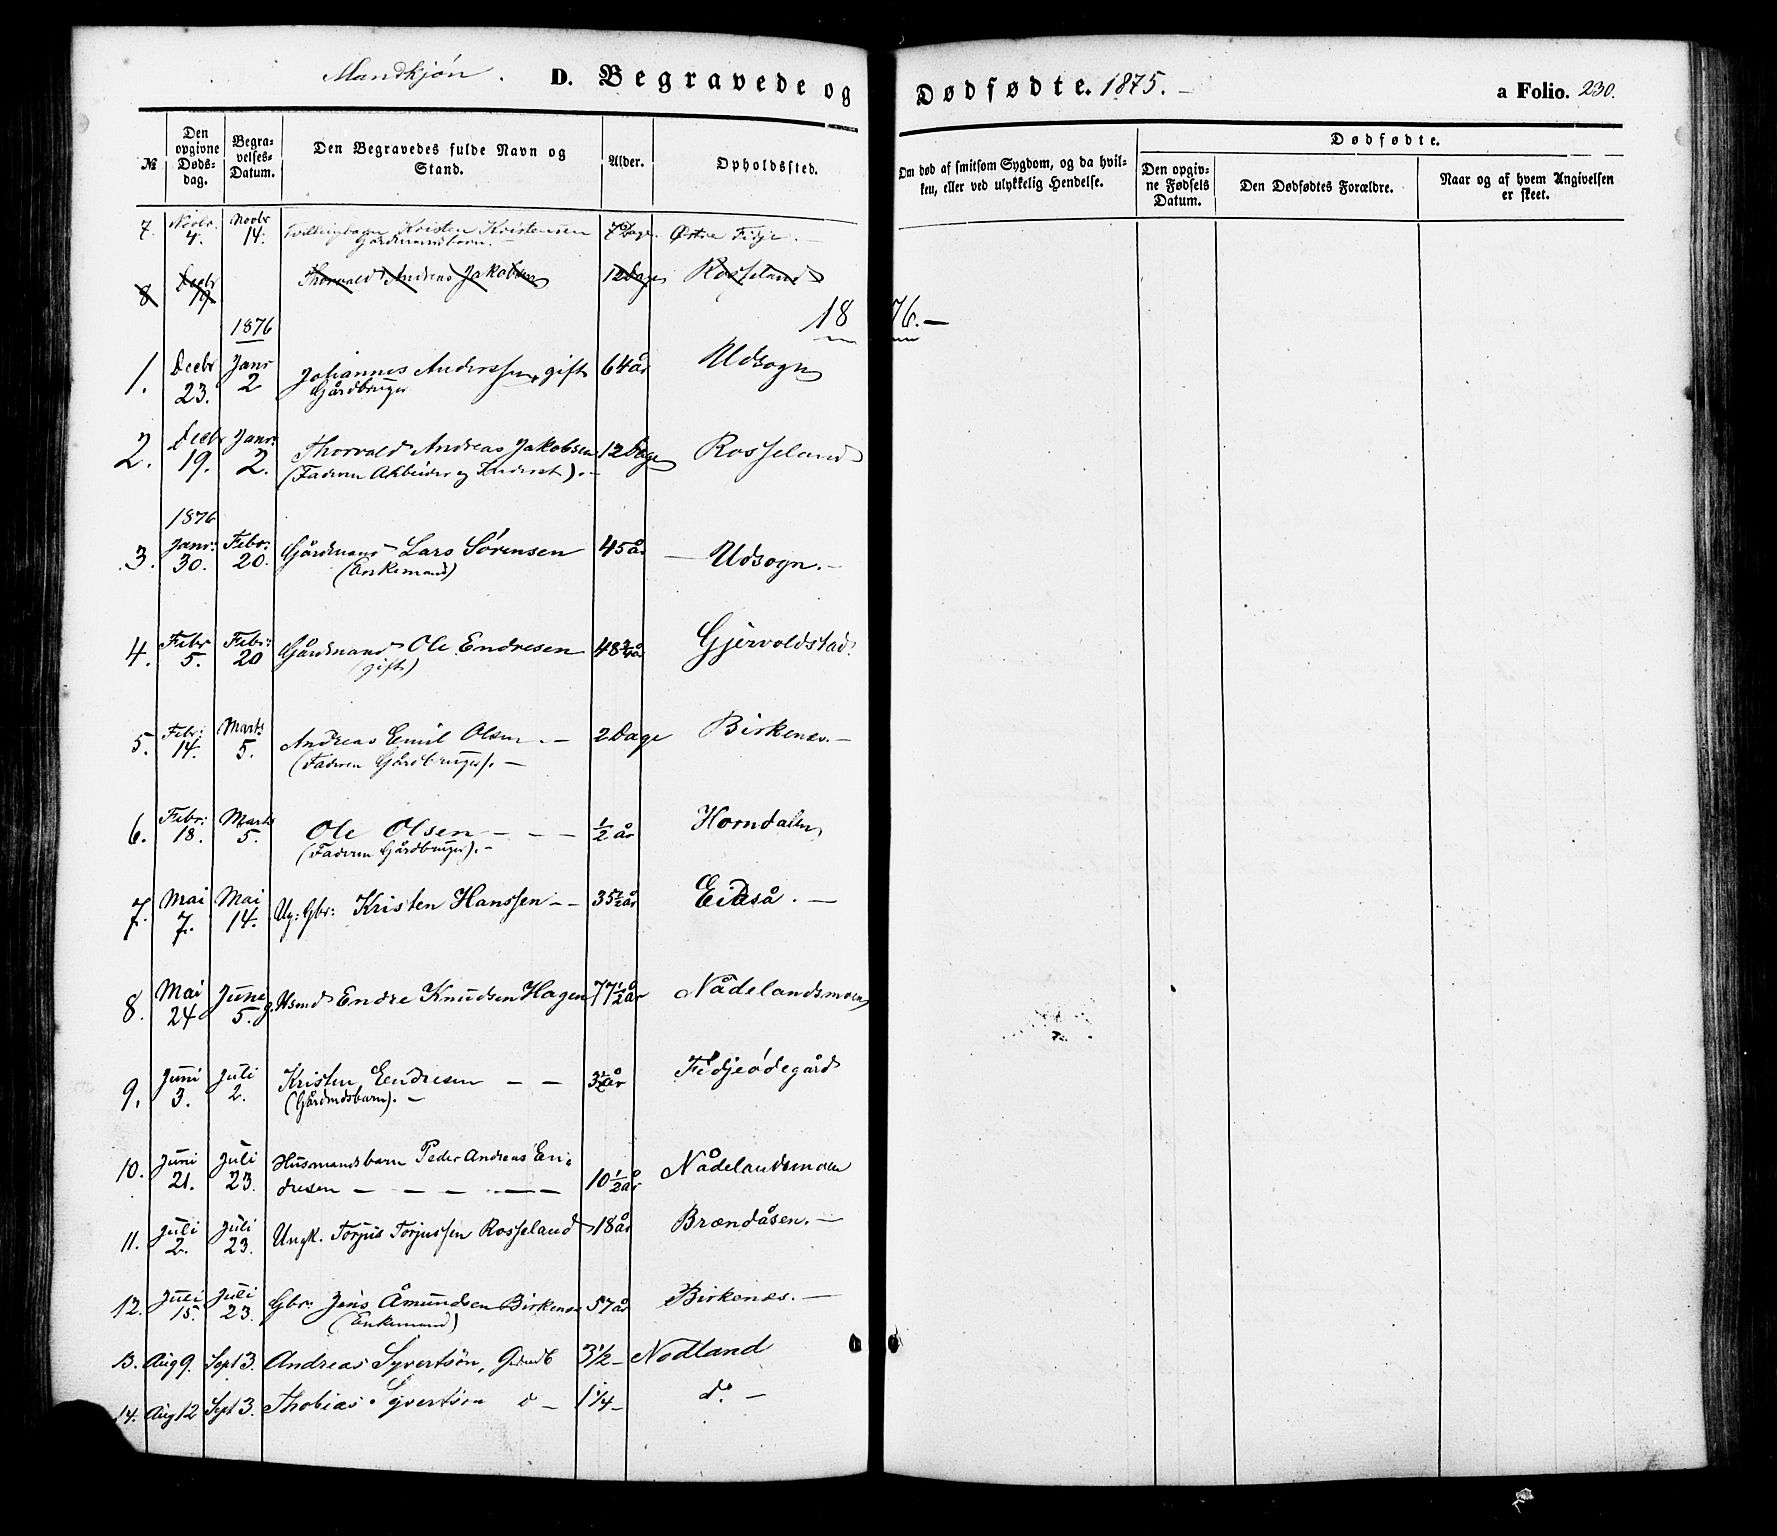 Mandkjøn. D. Begravede og Dødfødte. 1875. — a Folio. 230.
№ Den opgivne Døds-dag. Begra-velses-Datum. Den Begravedes fulde Navn og Stand. Alder. Opholdssted. Om død af smitsom Sygdom, og da hvil-ken, eller ved ulykkelig Hendelse. Dødfødte. Den opgiv-ne Fødsels Datum. Den Dødfødtes Forældre. Naar og af hvem Angivelsen er skeet.
7. Novbr. 4. Novbr 14. Tvillingbarn Kristen Kristensen 7 Dage. Østre Fidje. —
Gårdmannsbarn. —
8 Decbr 19. Thorvald Andreas Jakobsen 12 Dage Rosseland
1876 1876. —
1. Decbr 23. Janr 2 Johannes Anderssen, gift 64 år Udsogn
Gårdbruger
2. Decbr 19. Janr: 2. Thorvald Andreas Jakobsen 12 Dage Rosseland
(Faderen Arbeider og Inderst). —
1876
3. Janr: 30. Febr: 20. Gårdmand Lars Sørensen 45 år — Udsogn. —
(Enkemand)
4. Febr 5. Febr: 20 Gårdmand Ole Endresen 48 ¾ år Gjervoldstad.
(gift)
5. Febr: 14. Marts 5. Andreas Emil Olsen. — 2 Dage Birkenes. —
(Faderen Gårdbruger). —
6. Febr: 18. Marts 5. Ole Olsen — — — ½ år Horndalen
(Faderen Gårdbruger). —
7. Mai 7. Mai 14. Ug: Gbr: Kristen Hanssen — — 35 ½ år Eidså. —
8. Mai 24 Juni 5. g. Husmd Endre Knudsen Hagen 77 ½ år Nådelandsmoen
9. Juni 3. Juli 2. Kristen Endresen — — 3 ½ år Fidjeødegård
(Gårdmdsbarn). —
10. Juni 21. Juli 23. Husmandsbarn Peder Andreas En-
dresen — — — — — 10 ½ år Nådelandsmoen
11. Juli 2. Juli 23. Ungk. Torjus Torjussen Rosseland 18 år Brændåsen. —
12. Juli 15. Juli 23. Gbr: Jens Åmundsen Birkenes 57 år Birkenes. —
(Enkemand)
13. Aug 9. Sept 3. Andreas Syvertsön, Grdmdb 3 ½ — Nodland
14. Aug 12 Sept 3. Thobias Syvertsön d — 1 ¼ — do. —